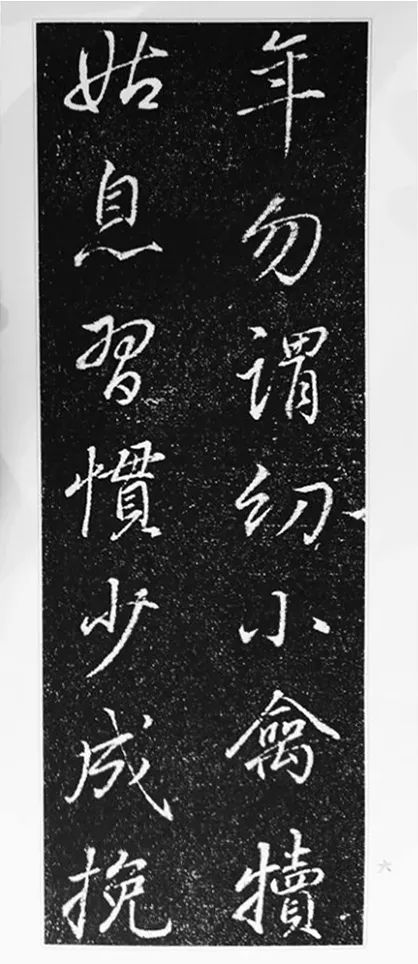 年勿謂幼小禽犢
姑息習慣少成挽
六